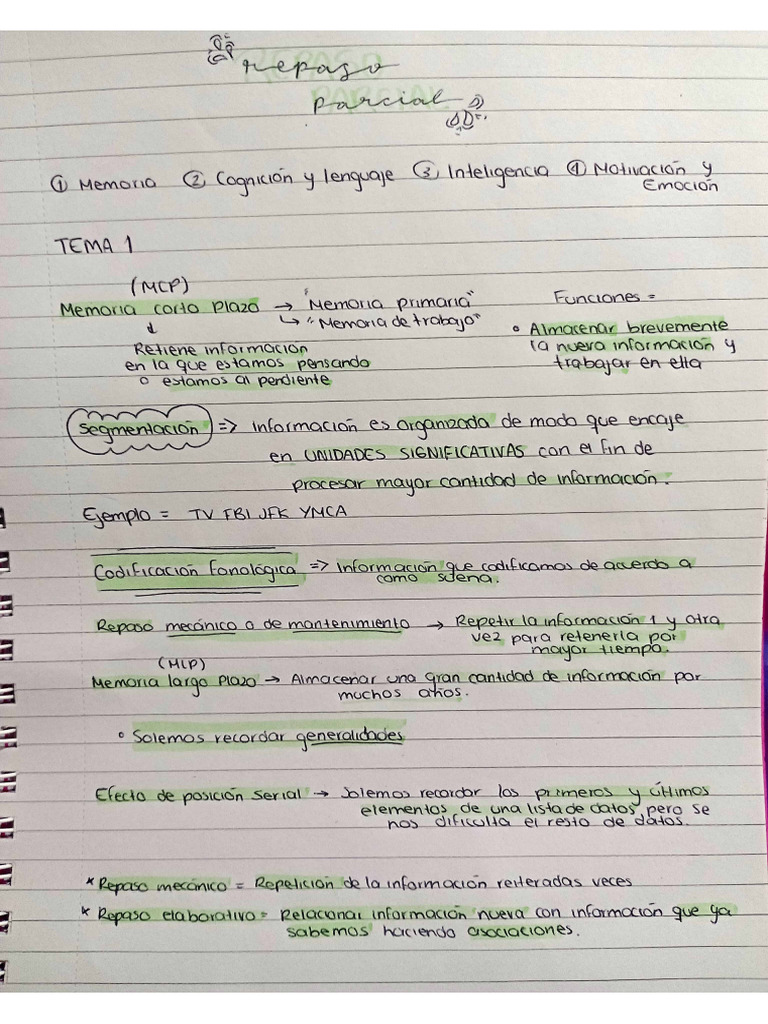 repaso
parcial
① Memoria ② Cognición y lenguaje ③ Inteligencia ④ Motivación y
Emoción
TEMA 1
(MCP)
Memoria corto plazo → "Memoria primaria"
↳ "Memoria de trabajo"
↓
Retiene información
en la que estamos pensando
o estamos al pendiente
Funciones =
• Almacenar brevemente
la nueva información y
trabajar en ella
Segmentación => Información es organizada de modo que encaje
en UNIDADES SIGNIFICATIVAS con el fin de
procesar mayor cantidad de información.
Ejemplo = TV FBI JFK YMCA
Codificación fonológica => Información que codificamos de acuerdo a
como suena.
Repaso mecánico o de mantenimiento → Repetir la información 1 y otra
vez para retenerla por
mayor tiempo.
(MLP)
Memoria largo plazo → Almacenar una gran cantidad de información por
muchos años.
• Solemos recordar generalidades
Efecto de posición serial → Solemos recordar los primeros y últimos
elementos de una lista de datos, pero se
nos dificulta el resto de datos.
* Repaso mecánico = Repetición de la información reiteradas veces
* Repaso elaborativo = Relacionar información nueva con información que ya
sabemos haciendo asociaciones.